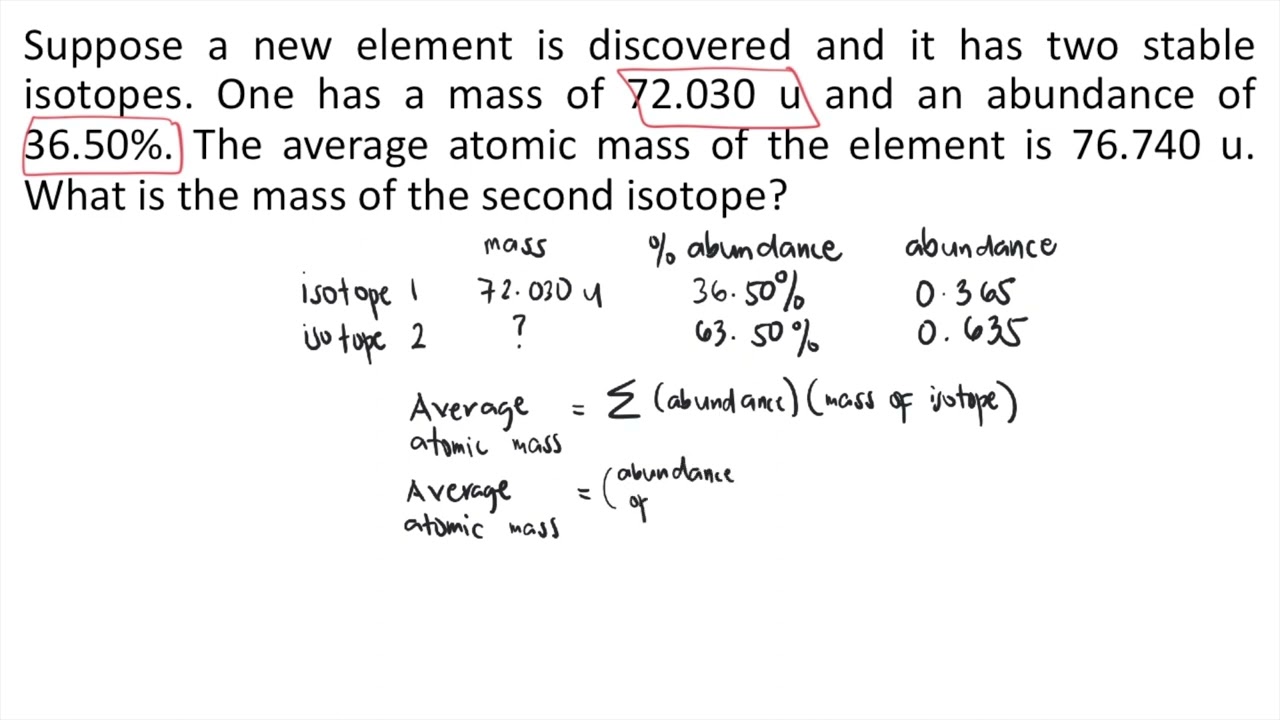 Suppose a new element is discovered and it has two stable
isotopes. One has a mass of 72.030 u and an abundance of
36.50%. The average atomic mass of the element is 76.740 u.
What is the mass of the second isotope?
mass % abundance abundance
isotope 1 72.030 u 36.50% 0.365
isotope 2 ? 63.50% 0.635
Average = Σ (abundance)(mass of isotope)
atomic mass
Average = (abundance
atomic mass of